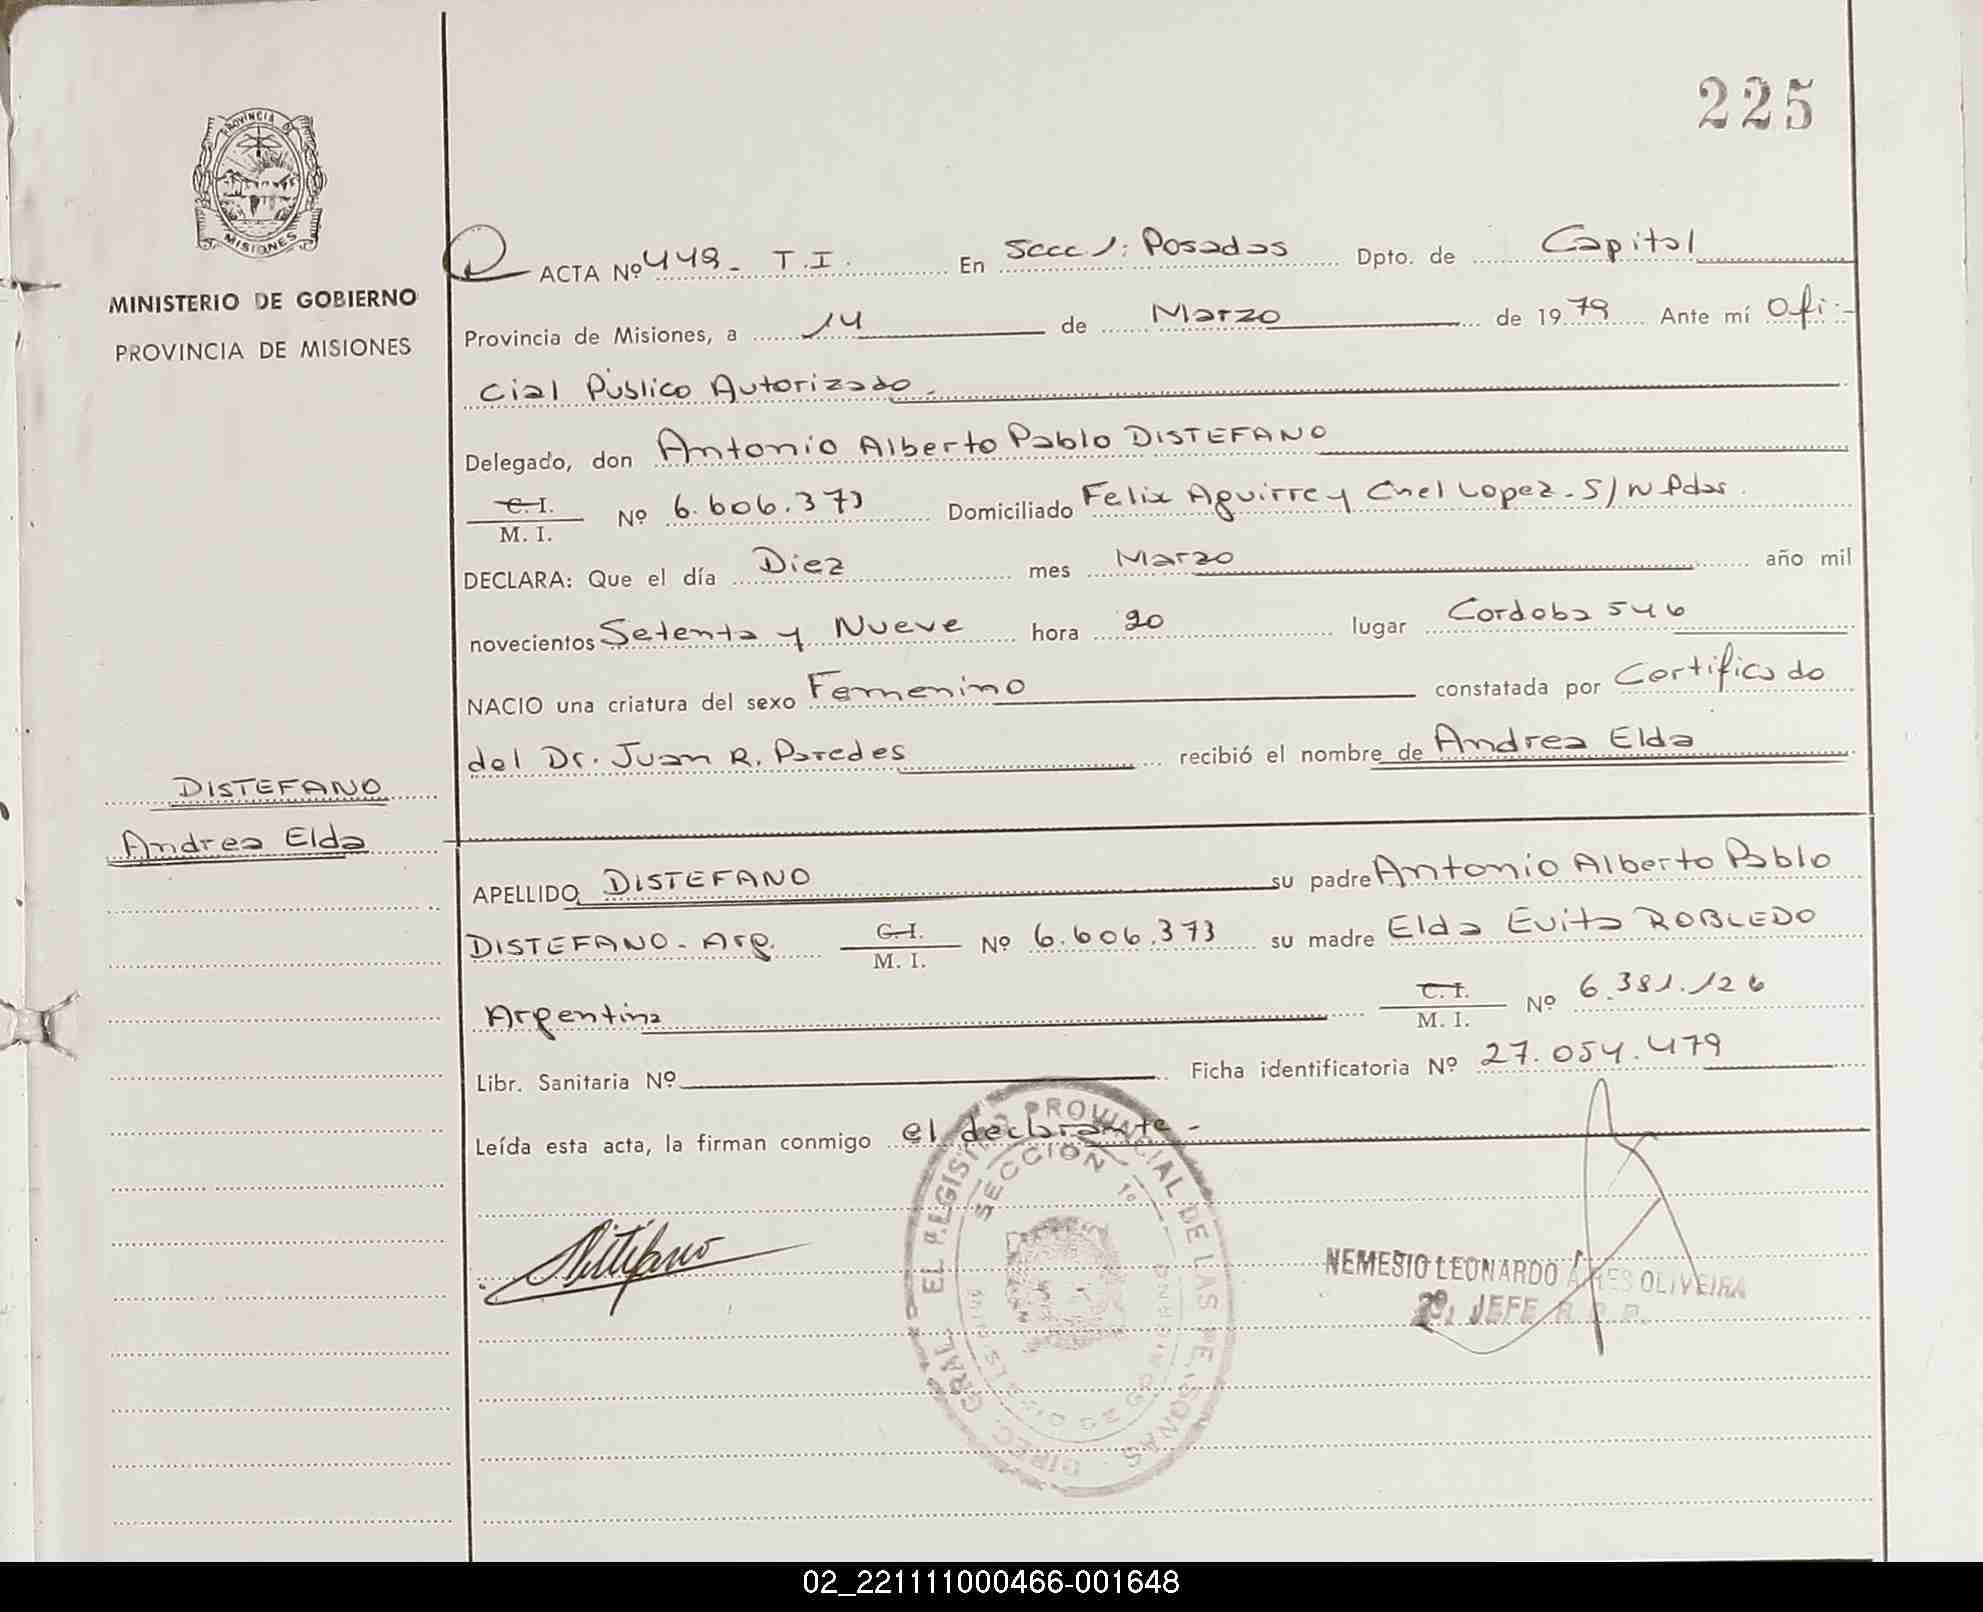 225
PROVINCIA DE
MISIONES
MINISTERIO DE GOBIERNO
PROVINCIA DE MISIONES
ACTA Nº 449_ T.I. En Secc 1: Posadas Dpto. de Capital
Provincia de Misiones, a 14 de Marzo de 1979 Ante mí Ofi-
cial Público Autorizado.
Delegado, don Antonio Alberto Pablo DISTEFANO
C. I.
M. I. Nº 6.606.373 Domiciliado Felix Aguirre y Cnel Lopez - S/N Pdas.
DECLARA: Que el día Diez mes Marzo año mil
novecientos Setenta y Nueve hora 20 lugar Cordoba 546
NACIO una criatura del sexo Femenino constatada por Certificado
del Dr. Juan R. Paredes recibió el nombre de Andrea Elda
DISTEFANO
Andrea Elda
APELLIDO DISTEFANO su padre Antonio Alberto Pablo
DISTEFANO - Arg. C. I.
M. I. Nº 6.606.373 su madre Elda Evita ROBLEDO
Argentina C. I.
M. I. Nº 6.381.126
Libr. Sanitaria Nº Ficha identificatoria Nº 27.054.479
Leída esta acta, la firman conmigo el declarante -
DIREC. GRAL. EL REGISTRO PROVINCIAL DE LAS PERSONAS
SECCION 1º
Distefano
NEMESIO LEONARDO OLIVEIRA
2º, JEFE R. P. P.
02_221111000466-001648